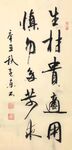 生材貴適用
慎勿多苛求
辛丑秋